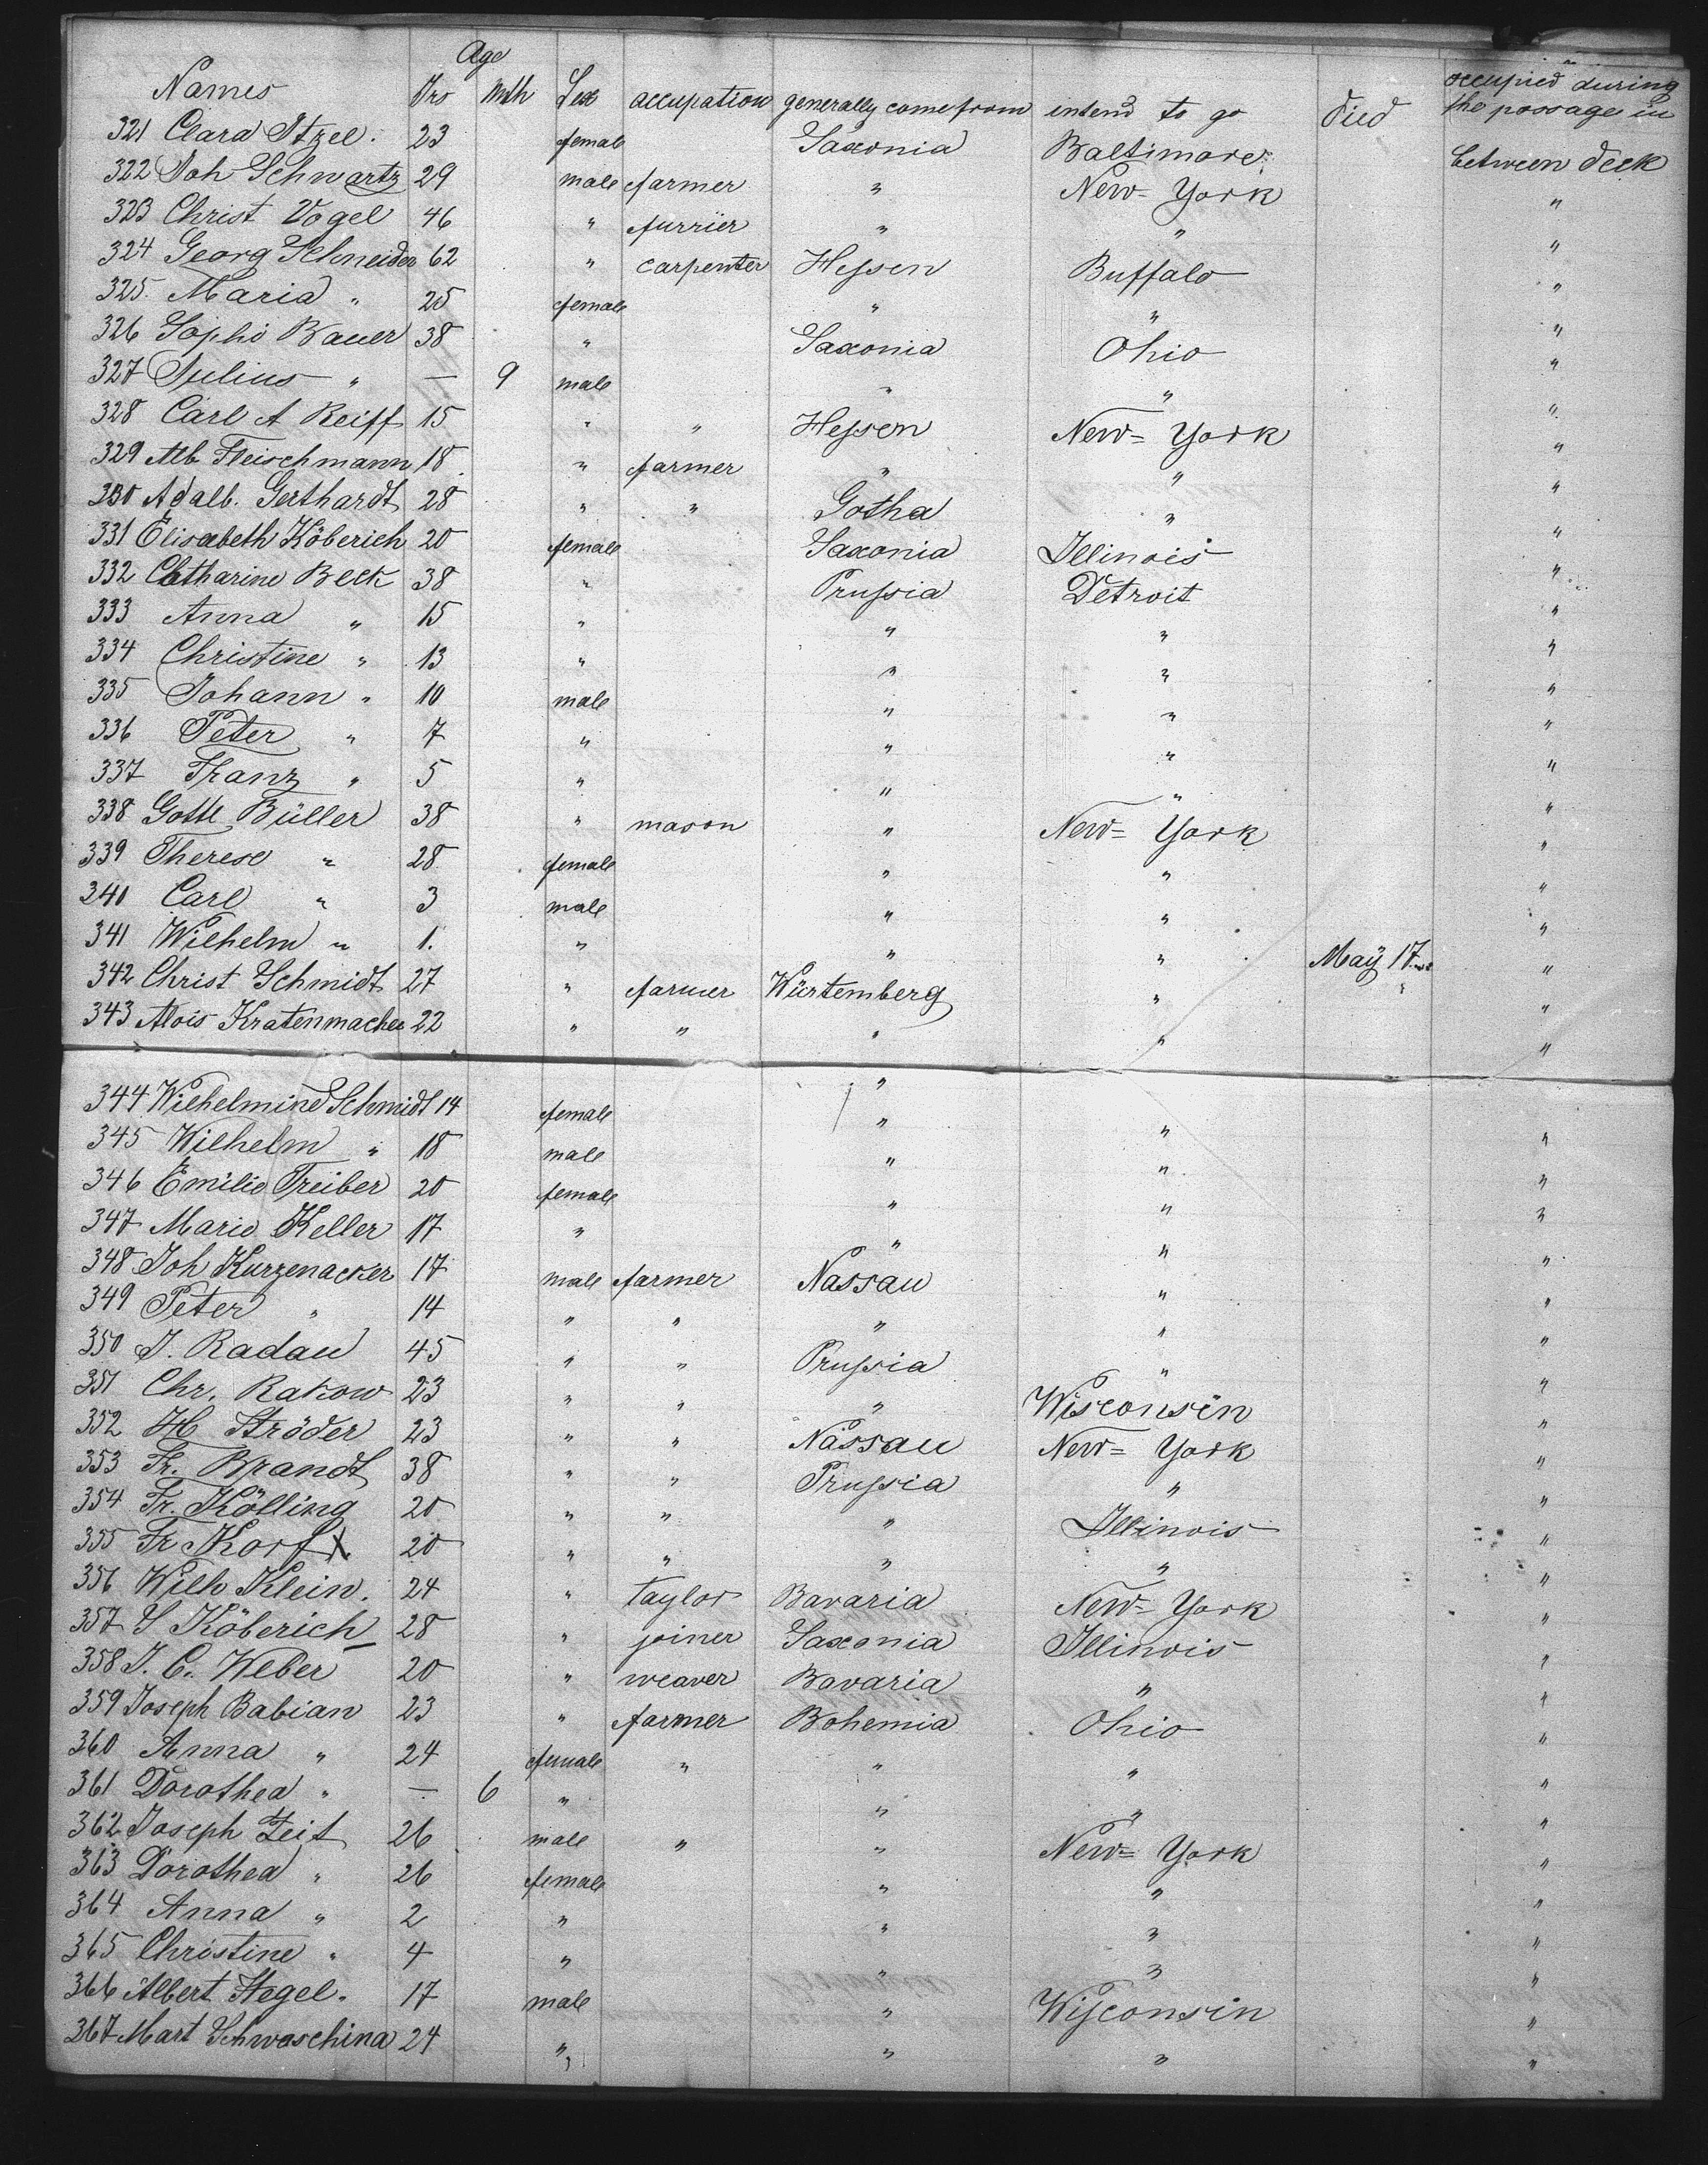 Age
Names Yrs Mth Sex occupation generally come from intend to go Died occupied during the passage in
321 Clara Itzel. 23 female Saxonia Baltimore between deck
322 Joh Schwartz 29 male farmer " New=York "
323 Christ Vogel 46 " furrier " " "
324 Georg Schneider 62 " carpenter Hessen Buffalo "
325. Maria " 25 female " " "
326 Sophie Bauer 38 " Saxonia Ohio "
327 Julius " — 9 male " " "
328 Carl A Reiff 15 " " Hessen New=York "
329 Alb Fleischmann 18 " farmer " " "
330 Adalb. Gerthardt 28 " " Gotha " "
331 Elisabeth Köberich 20 female Saxonia Illinois "
332 Catharine Beck 38 " Prussia Detroit "
333 Anna " 15 " " " "
334 Christine " 13 " " " "
335 Johann " 10 male " " "
336 Peter " 7 " " " "
337 Franz " 5 " " " "
338 Gottl Büller 38 " mason " New=York "
339 Therese " 28 female " " "
340 Carl " 3 male " " "
341 Wilhelm " 1. " " " May 17 "
342 Christ Schmidt 27 " farmer Würtemberg " "
343 Alois Kratenmacher 22 " " " " "
344 Wilhelmine Schmidt 14 female " " "
345 Wilhelm " 18 male " " "
346 Emilie Treiber 20 female " " "
347 Marie Keller 17 " " " "
348 Joh Kurzenacker 17 male farmer Nassau " "
349 Peter " 14 " " " " "
350 J. Radau 45 " " Prussia " "
351 Chr. Rakow 23 " " " Wisconsin "
352 H Ströder 23 " " Nassau New=York "
353 Fr. Brandt 38 " " Prussia " "
354 Fr. Kölling 20 " " " Illinois "
355 Fr Korf X 20 " " " " "
356 Wilh Klein. 24 " taylor Bavaria New=York "
357 S Köberich 28 " joiner Saxonia Illinois "
358 J. C. Weber 20 " weaver Bavaria " "
359 Joseph Babian 23 " farmer Bohemia Ohio "
360 Anna " 24 female " " " "
361 Dorothea " — 6 " " " "
362 Joseph Zeit 26 male " " New=York "
363 Dorothea " 26 female " " "
364 Anna " 2 " " " "
365 Christine " 4 " " " "
366 Albert Hegel. 17 male " Wisconsin "
367 Mart Schwaschina 24 " " " "